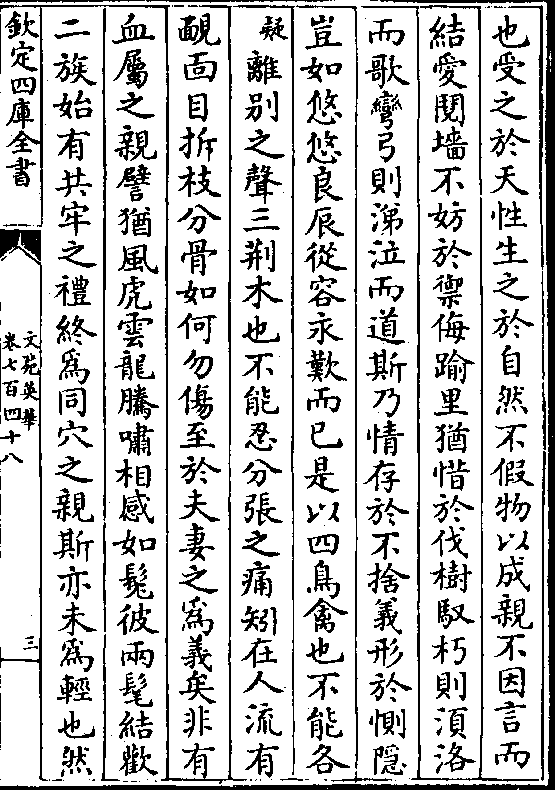 也受之於天性生之於自然不假物以成親不因言而
結愛䦧墻不妨於禦侮踰里猶惜於伐樹馭朽則湏洛
而歌彎弓則涕泣而道斯乃情存於不捨義形於惻隱
豈如悠悠良辰從容永歎而已是以四鳥禽也不能各
疑離别之聲三荆木也不能忍分張之痛矧在人流有
靦面目拆枝分骨如何勿傷至於夫妻之為義矣非有
血屬之親譬猶風虎雲龍騰嘯相感如髧彼兩髦結歡
二族始有共牢之禮終為同穴之親斯亦未為輕也然
欽定四庫全書
文苑英華
卷七百四十八
三